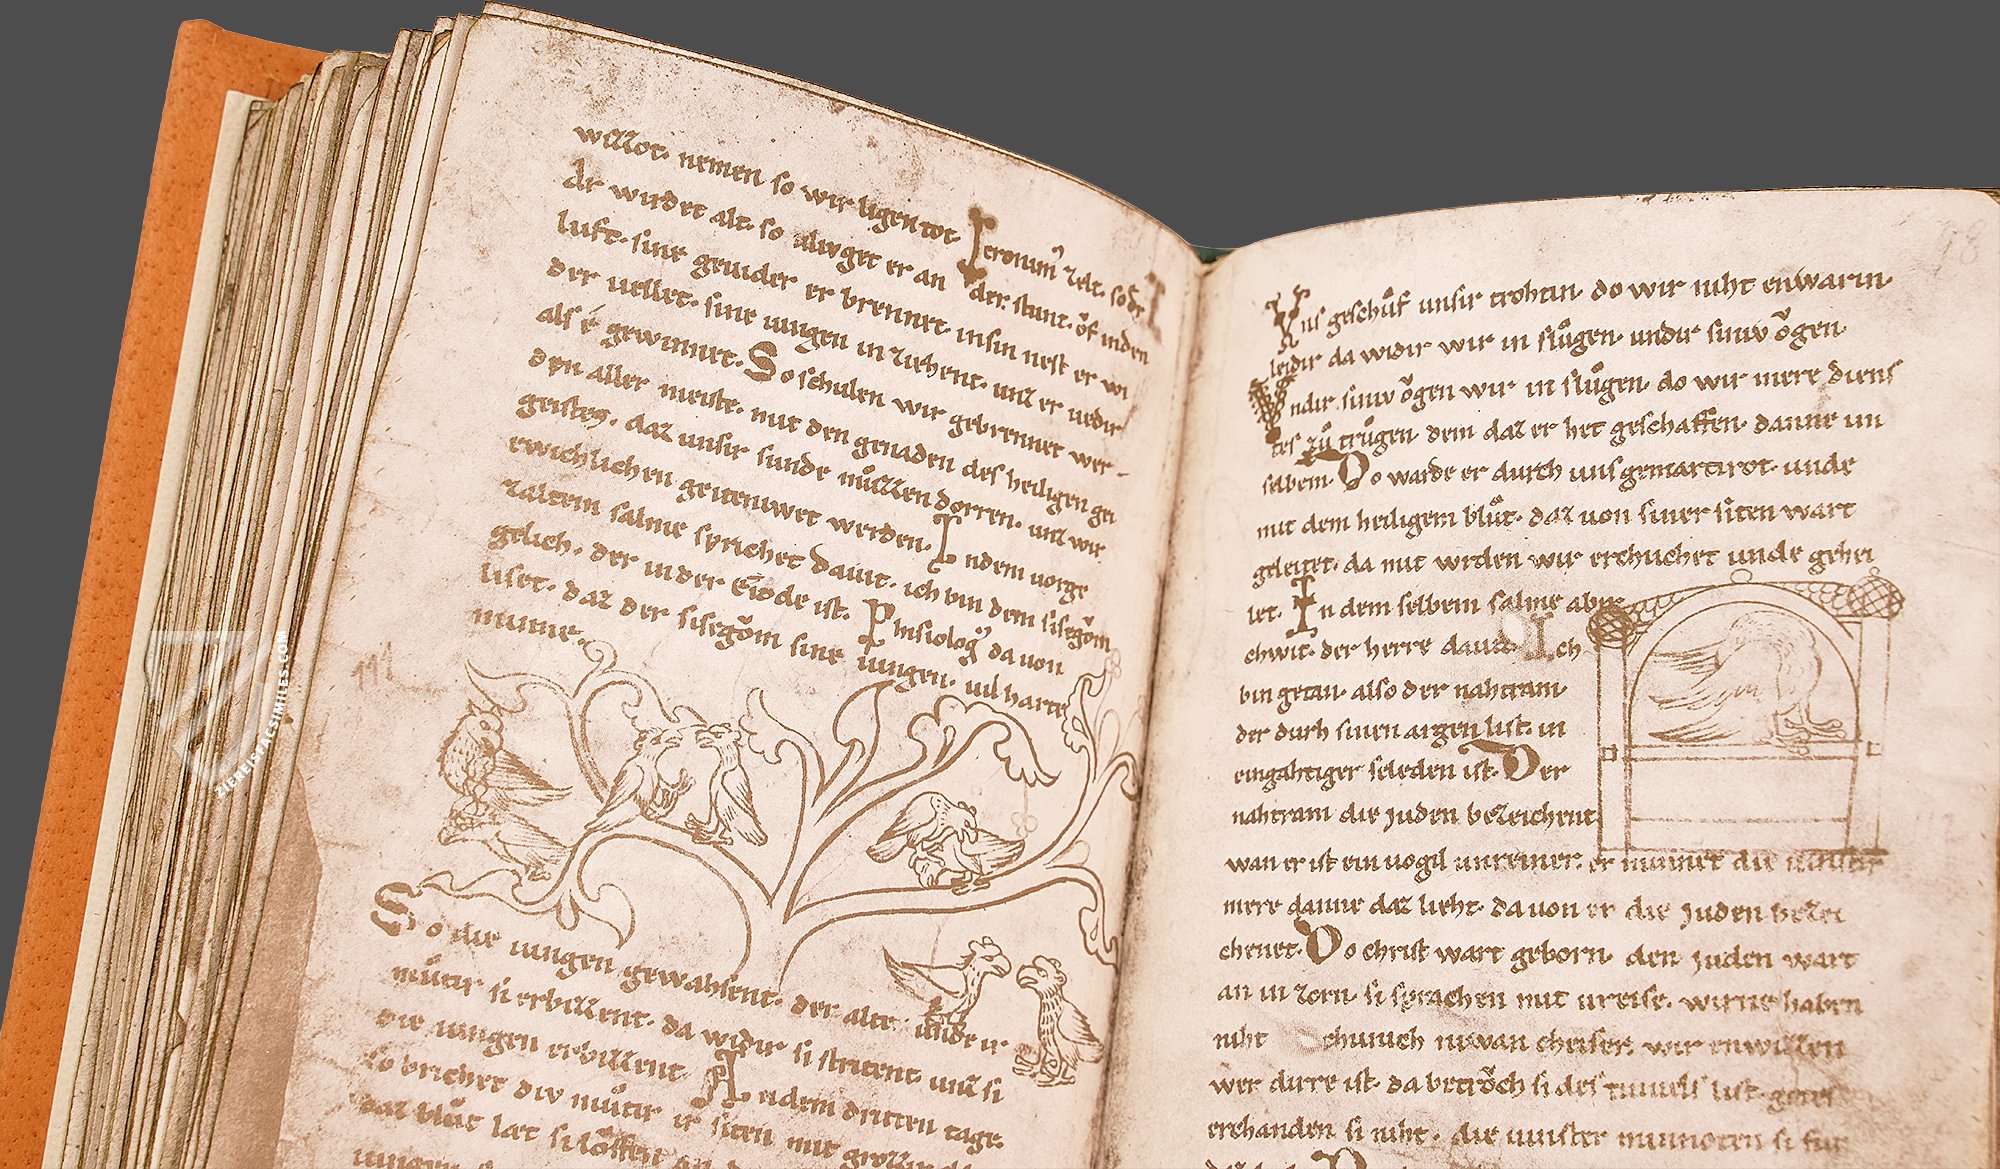 wizzot. nemen so wir ligen tot. Jeronim᷒ zelt. so dr̄
Ar wirdet alt. so alwget er an der stunt. ŏf inden
luft. sine geuider er brennet. insin nest er wi
der uellet. sine iungen in ziehent. unz er iedir
als é gewinnet. So schulen wir gebrennet wer-
den aller meiste. mit den genaden des heiligen gei
geistes. daz unsir sunde můzzen dorren. unz wir
ewichlichen geiteniwet werden. Indem uorge
zaltem salme sprichet Dauit. ich bin dem sisegŏm
gelich. der inder Einŏde ist. Phisiolog᷒ da uon
liset. daz der sisegŏm sine iungen. uil harte
minne.
So die iungen gewahsent. der alte unde ir
můtir si erbizzent. da widir si stritent. unz si
die iungen erbizzent. An dem dritten tage.
so brichet div můtir ir siten mit
daz blůt læt si
iungen
Vns geschůf unsir trohtin. do wir niht enwarin.
leidir da widir wir in slůgen. undir siniv ŏgen.
Vndir siniv ŏgen wir in slůgen. do wir mere diens
tes zů trůgen dem daz er het geschaffen. danne im
selbem. Do warde er durch uns gemartirot. unde
mit dem heiligem blůt. daz uon siner sîten wart
geleitet. da mit wrden wir erchuchet unde gehei
let. In dem selbem salme abir
chwit. der herre dauit. Ich
bin getan. also der nahtram.
der durh sinen argen list. in
eingahtiger seleden ist. Der
nahtram die Juden bezeichent.
wan er ist ein uogil unreiner. er minnet die uinstir
mere danne daz lieht. da uon er die Juden bezei
chenet. Do christ wart geborn. den Juden wart
an in zorn. si sprachen mit ureise. wirne haben
niht chunich niwan cheiser. wir enwizzen
wer dirre ist. da betrŏch si des tiuuels list. gotes
erchanden si niht. die uinster minnoten si fur
ZIEREIS FACSIMILES.COM